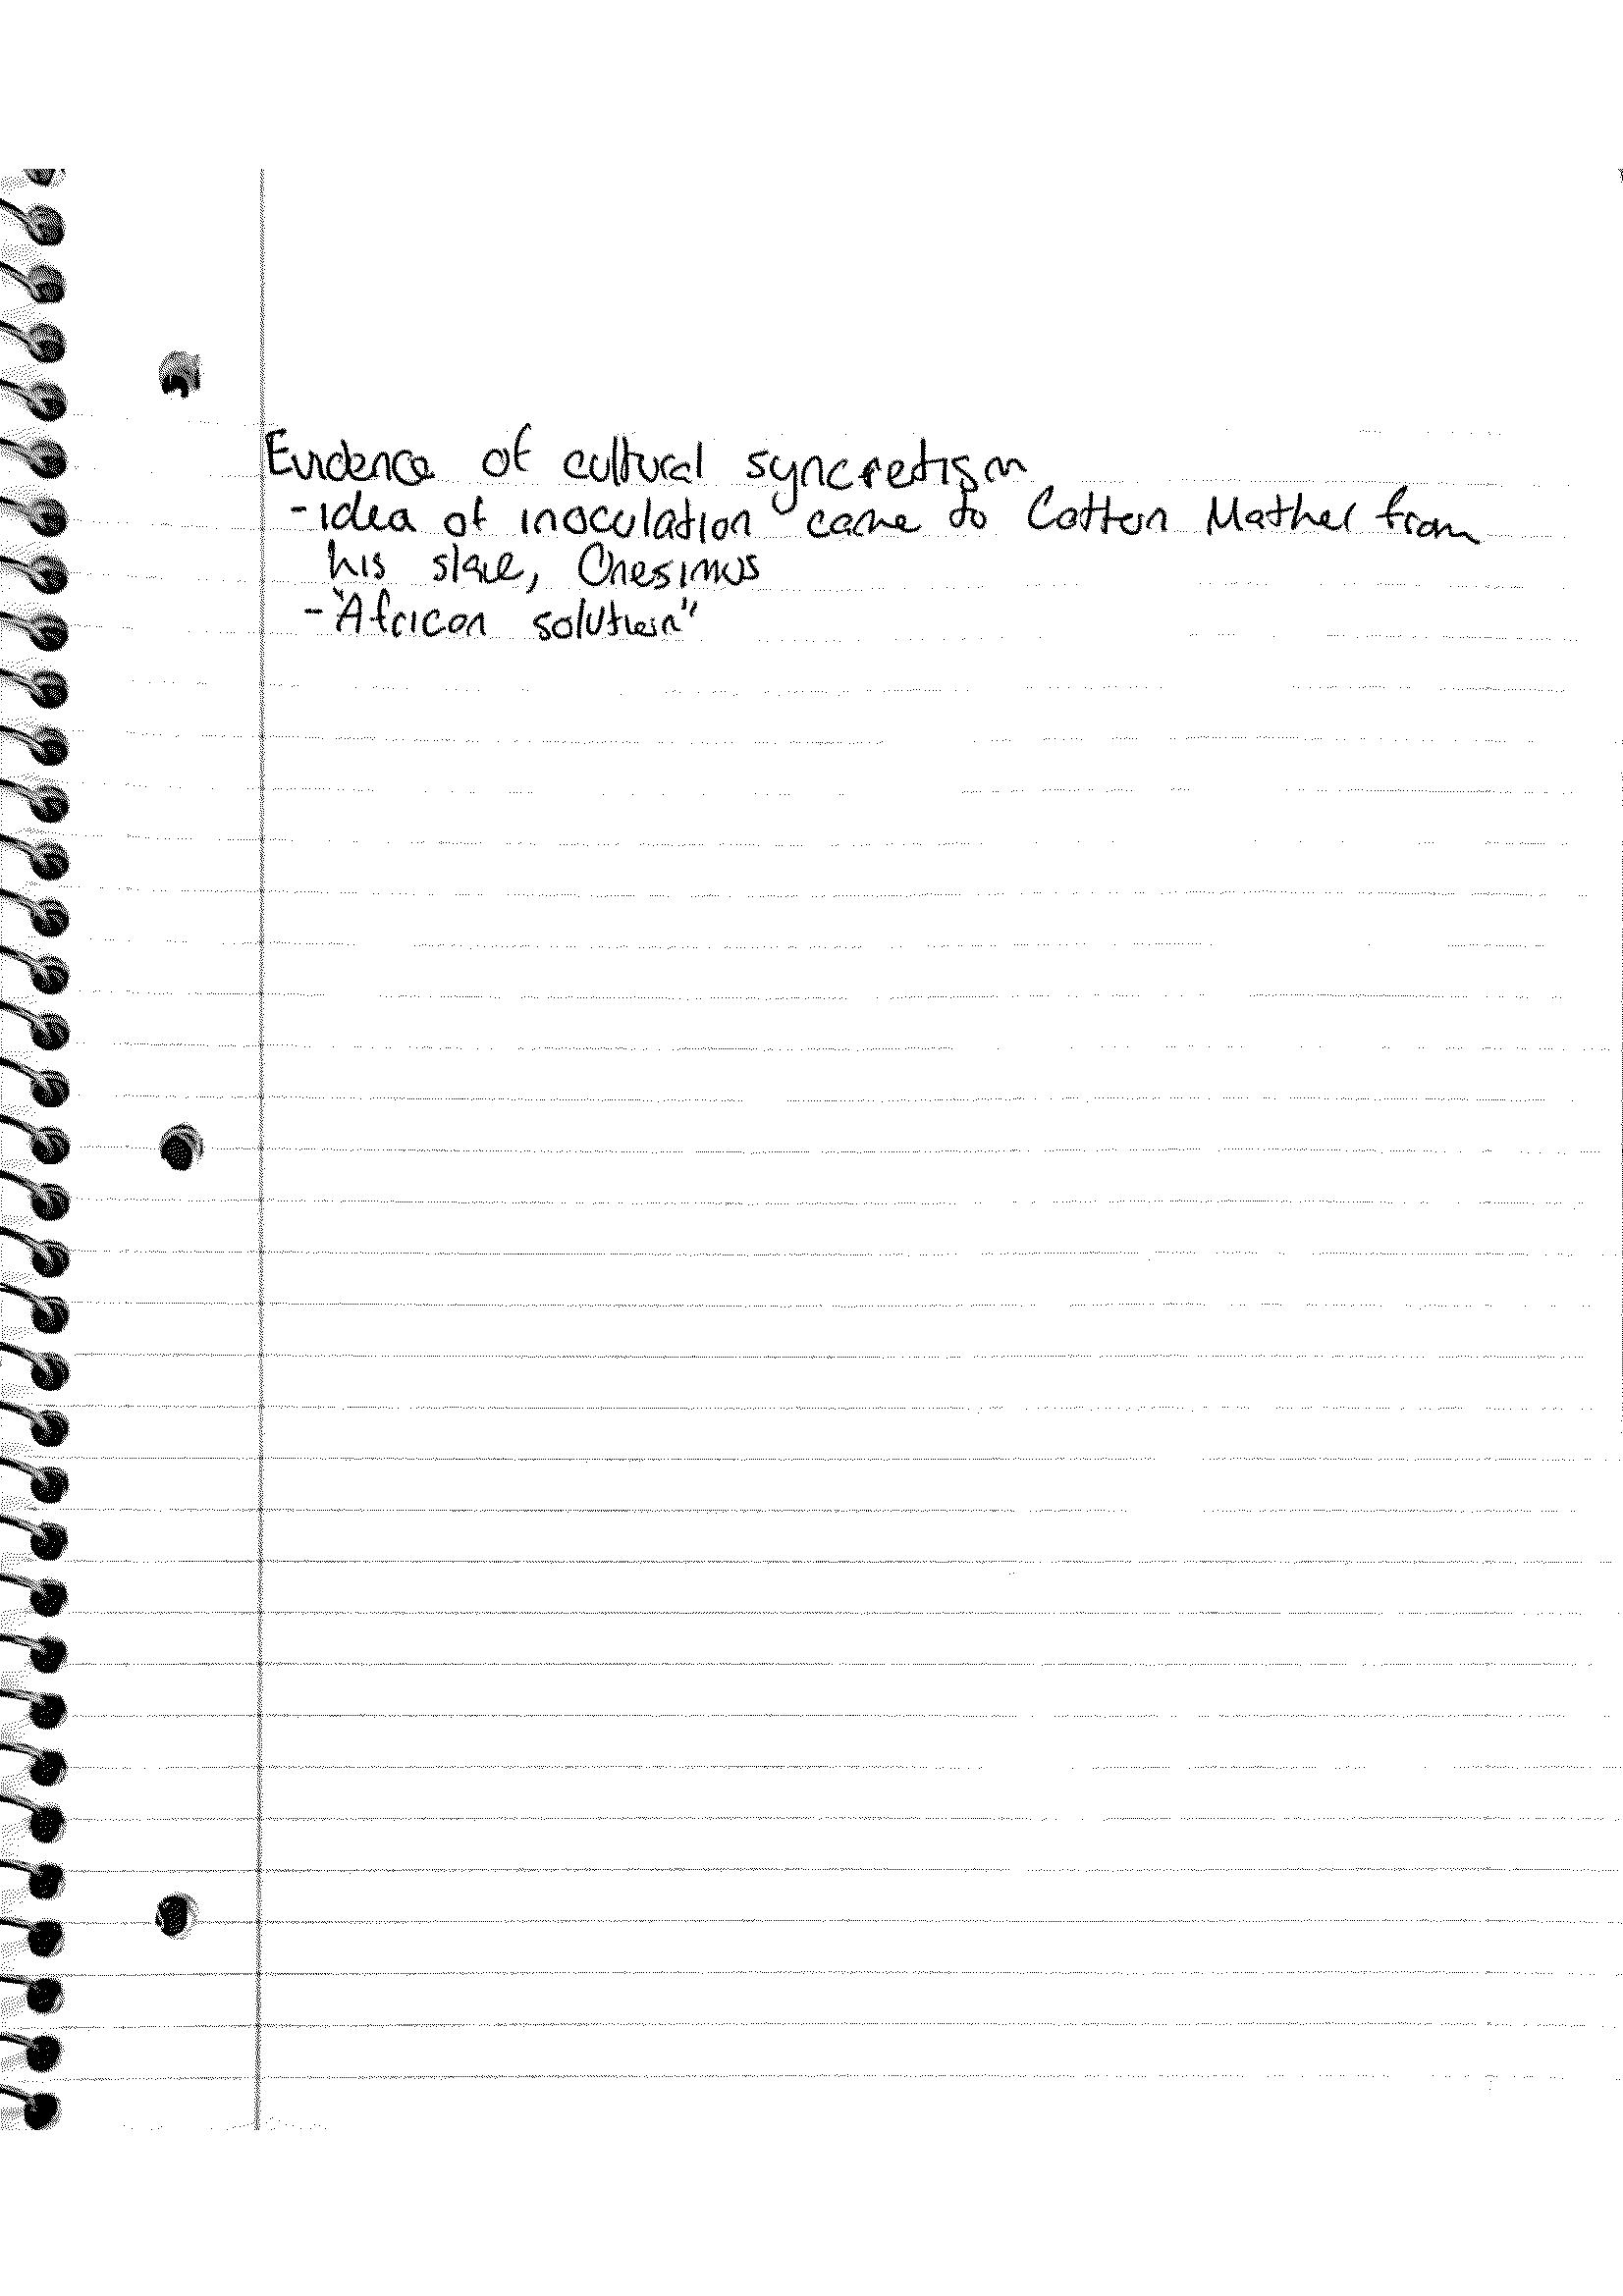 Evidence of cultural syncretism
- idea of inoculation came to Cotton Mather from
his slave, Onesimus
- "African solution"